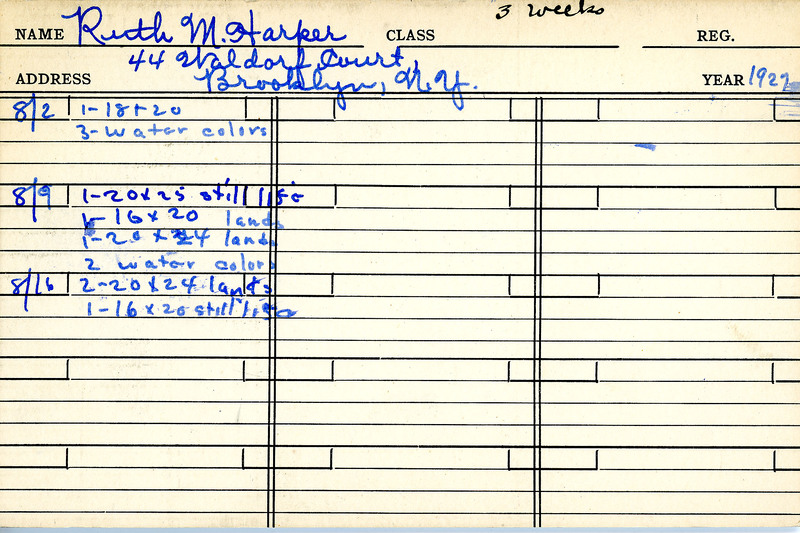 3 weeks
NAME Ruth M. Harper CLASS REG.
44 Waldorf Court,
ADDRESS Brooklyn, N.Y. YEAR 1929
8/2 1-18+20
3-water colors
8/9 1-20x25 still life
1-16x20 lands
1-20x24 lands
2 water colors
8/16 2-20x24 lands
1-16x20 still life